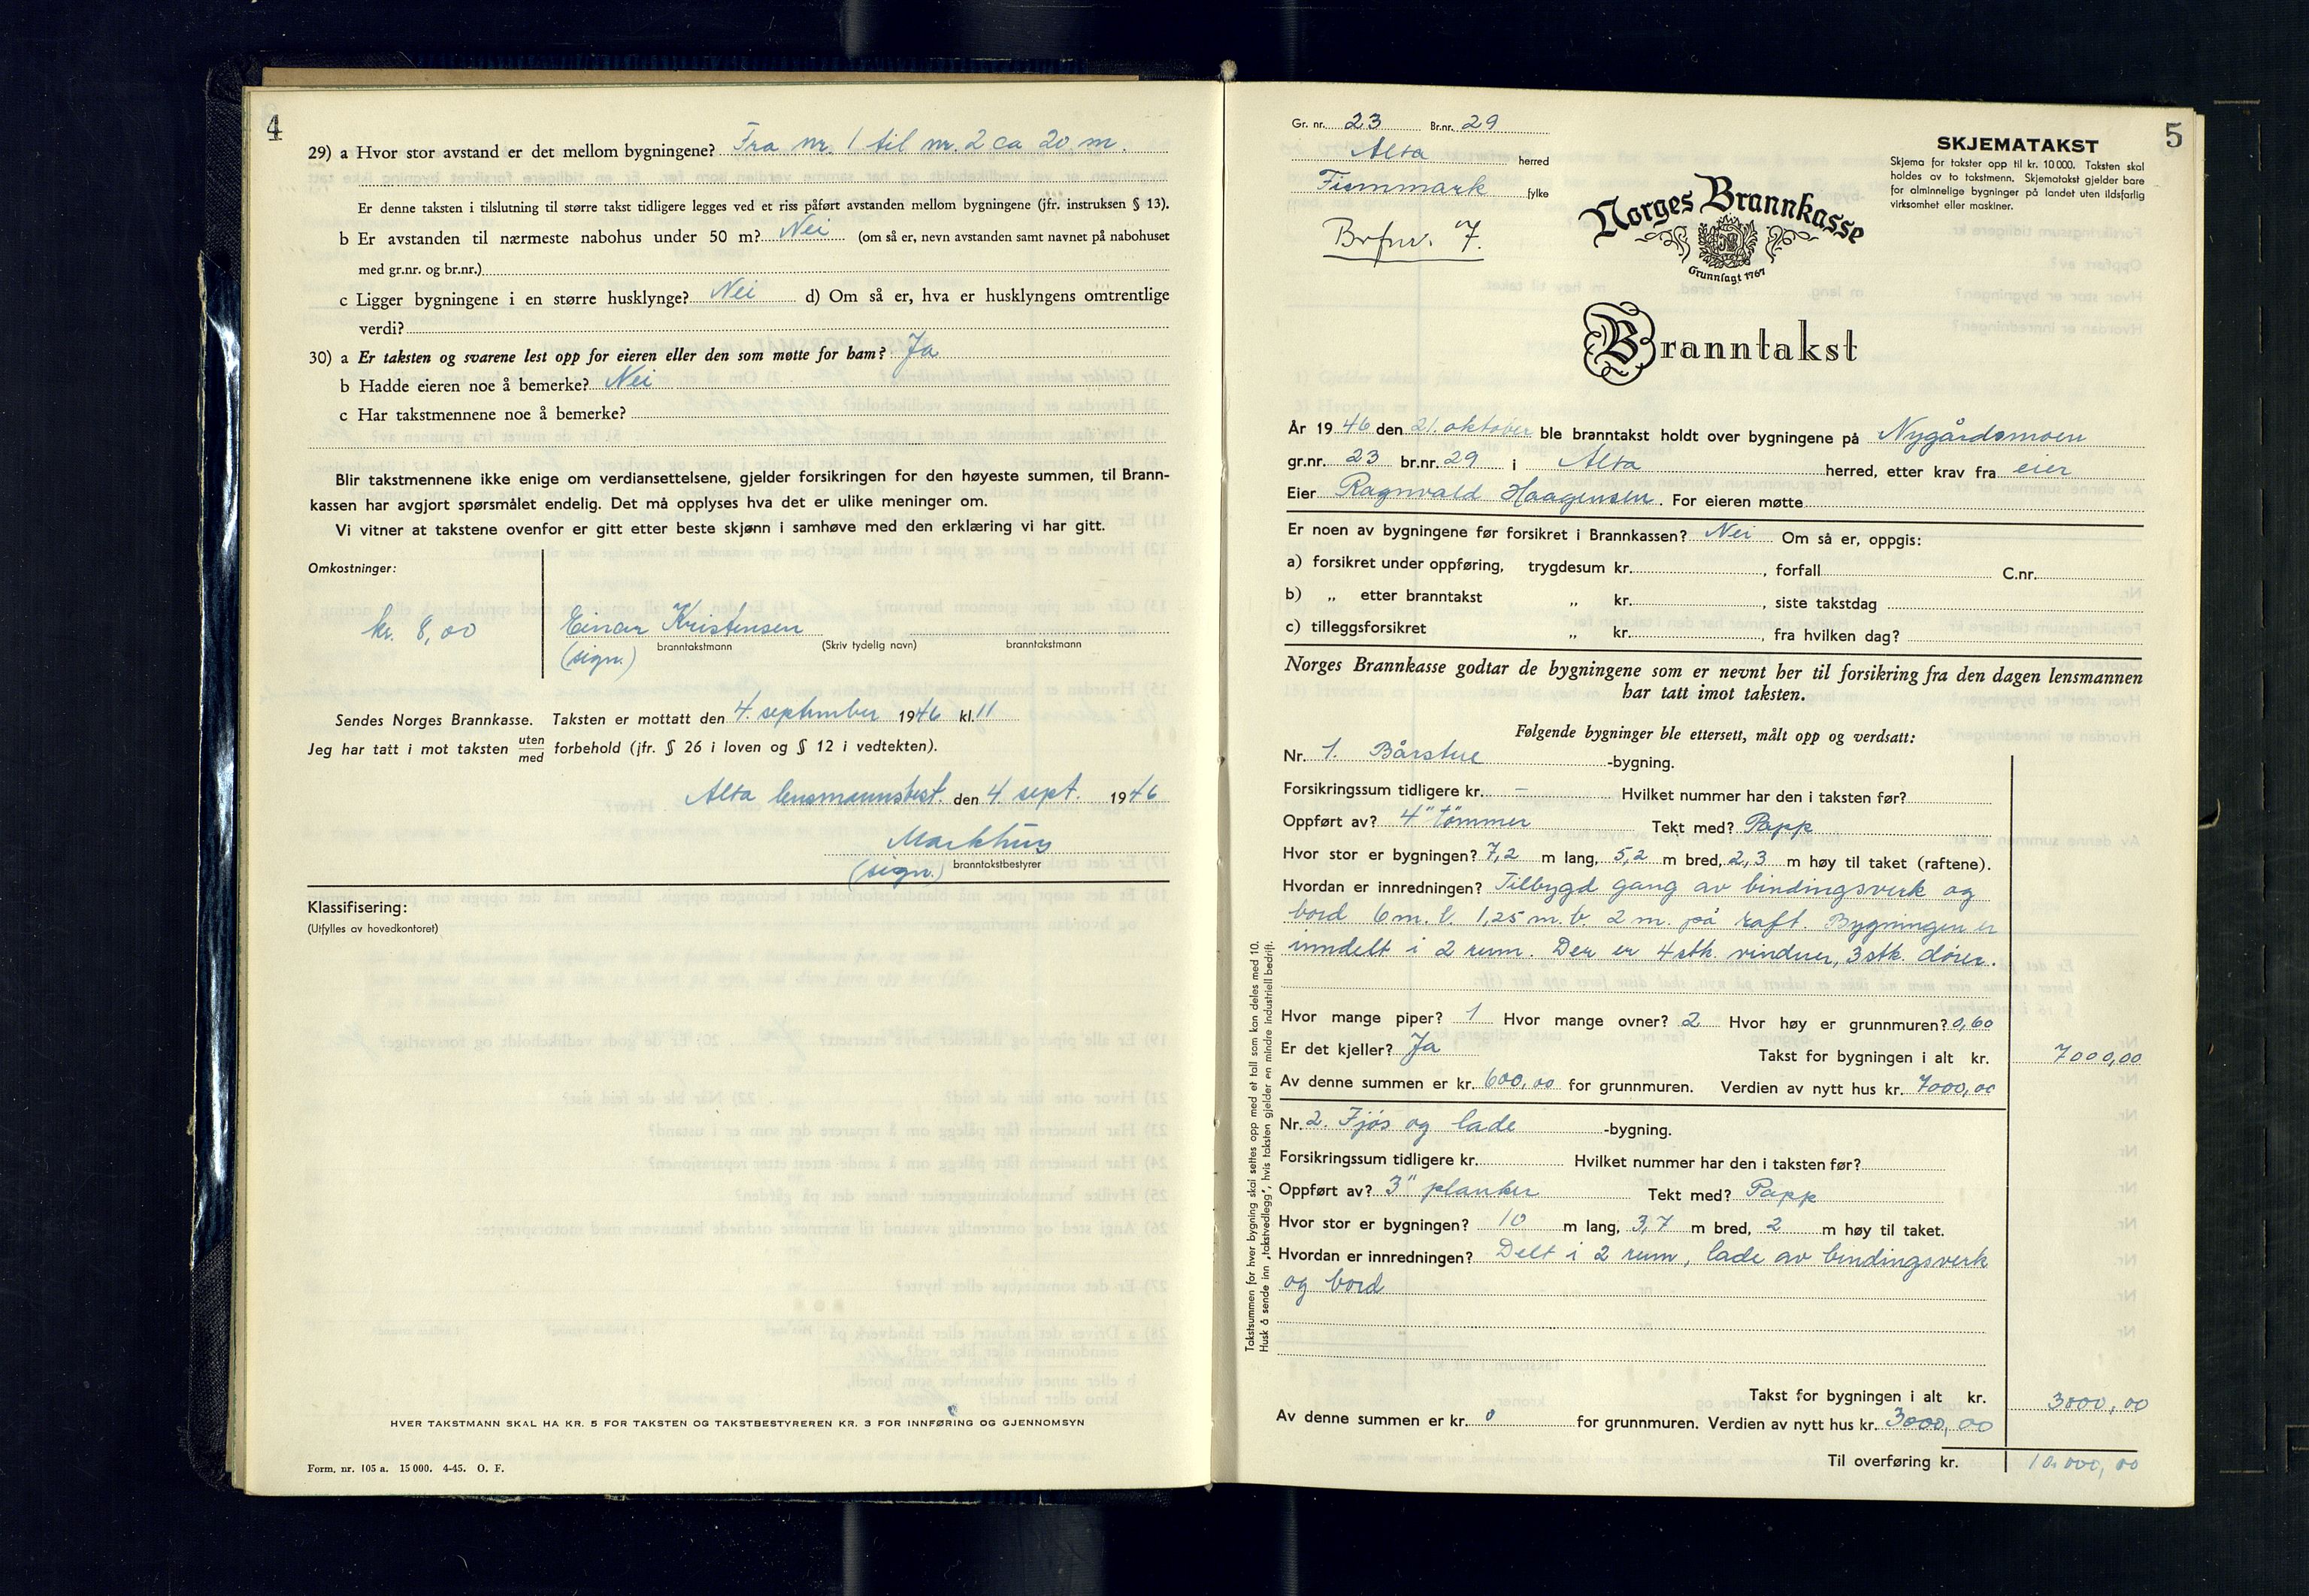 4
29) a Hvor stor avstand er det mellom bygningene? Fra nr. 1 til nr. 2 ca 20 m.
Er denne taksten i tilslutning til større takst tidligere legges ved et riss påført avstanden mellom bygningene (jfr. instruksen § 13).
b Er avstanden til nærmeste nabohus under 50 m? Nei (om så er, nevn avstanden samt navnet på nabohuset
med gr.nr. og br.nr.)
c Ligger bygningene i en større husklynge? Nei d) Om så er, hva er husklyngens omtrentlige
verdi?
30) a Er taksten og svarene lest opp for eieren eller den som møtte for ham? Ja
b Hadde eieren noe å bemerke? Nei
c Har takstmennene noe å bemerke?
Blir takstmennene ikke enige om verdiansettelsene, gjelder forsikringen for den høyeste summen, til Brann-
kassen har avgjort spørsmålet endelig. Det må opplyses hva det er ulike meninger om.
Vi vitner at takstene ovenfor er gitt etter beste skjønn i samhøve med den erklæring vi har gitt.
Omkostninger:
kr. 8,00
Einar Kristensen
(sign.) branntakstmann (Skriv tydelig navn) branntakstmann
Sendes Norges Brannkasse. Taksten er mottatt den 4. september 1946 kl. 11
Jeg har tatt i mot taksten uten/med forbehold (jfr. § 26 i loven og § 12 i vedtekten).
Alta lensmannsbest. den 4. sept. 1946
Markhus
(sign.) branntakstbestyrer
Klassifisering:
(Utfylles av hovedkontoret)
HVER TAKSTMANN SKAL HA KR. 5 FOR TAKSTEN OG TAKSTBESTYREREN KR. 3 FOR INNFØRING OG GJENNOMSYN
Form. nr. 105 a. 15 000. 4-45. O. F.
5
Gr. nr. 23 Br.nr. 29
Alta herred
Finnmark fylke
Brfnr. 7.
SKJEMATAKST
Skjema for takster opp til kr. 10 000. Taksten skal
holdes av to takstmenn. Skjematakst gjelder bare
for alminnelige bygninger på landet uten ildsfarlig
virksomhet eller maskiner.
Norges Brannkasse
Grunnlagt 1767
Branntakst
År 1946 den 21. oktober ble branntakst holdt over bygningene på Nygårdsmoen
gr.nr. 23 br.nr. 29 i Alta herred, etter krav fra eier
Eier Ragnvald Haagensen. For eieren møtte
Er noen av bygningene før forsikret i Brannkassen? Nei Om så er, oppgis:
a) forsikret under oppføring, trygdesum kr. , forfall C.nr.
b) „ etter branntakst „ kr. , siste takstdag
c) tilleggsforsikret „ kr. , fra hvilken dag?
Norges Brannkasse godtar de bygningene som er nevnt her til forsikring fra den dagen lensmannen
har tatt imot taksten.
Følgende bygninger ble ettersett, målt opp og verdsatt:
Nr. 1. Bårstue -bygning.
Forsikringssum tidligere kr. – Hvilket nummer har den i taksten før?
Oppført av? 4" tømmer Tekt med? Papp
Hvor stor er bygningen? 7,2 m lang, 5,2 m bred, 2,3 m høy til taket (raftene).
Hvordan er innredningen? Tilbygd gang av bindingsverk og
bord 6 m. l. 1,25 m. b. 2 m. på raft. Bygningen er
inndelt i 2 rum. Der er 4 stk. vinduer, 3 stk. dører.
Hvor mange piper? 1 Hvor mange ovner? 2 Hvor høy er grunnmuren? 0,60
Er det kjeller? Ja Takst for bygningen i alt kr. 7000,00
Av denne summen er kr. 600,00 for grunnmuren. Verdien av nytt hus kr. 7000,00
Nr. 2. Fjøs og lade -bygning.
Forsikringssum tidligere kr. Hvilket nummer har den i taksten før?
Oppført av? 3" planker Tekt med? Papp
Hvor stor er bygningen? 10 m lang, 3,7 m bred, 2 m høy til taket.
Hvordan er innredningen? Delt i 2 rum, lade av bindingsverk
og bord
Takst for bygningen i alt kr. 3000,00
Av denne summen er kr. 0 for grunnmuren. Verdien av nytt hus kr. 3000,00
Til overføring kr. 10.000,00
Takstsummen for hver bygning skal settes opp med et tall som kan deles med 10.
Husk å sende inn „takstvedlegg", hvis taksten gjelder en mindre industriell bedrift.